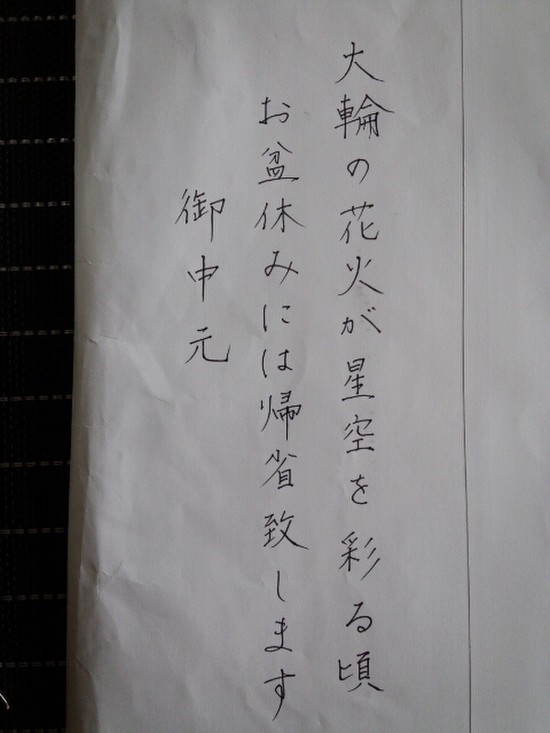 大輪の花火が星空を彩る頃
お盆休みには帰省致します
御中元